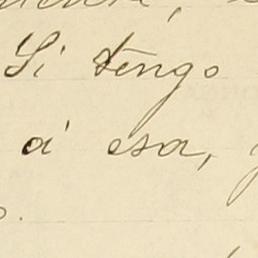 Si tengo
á esa,